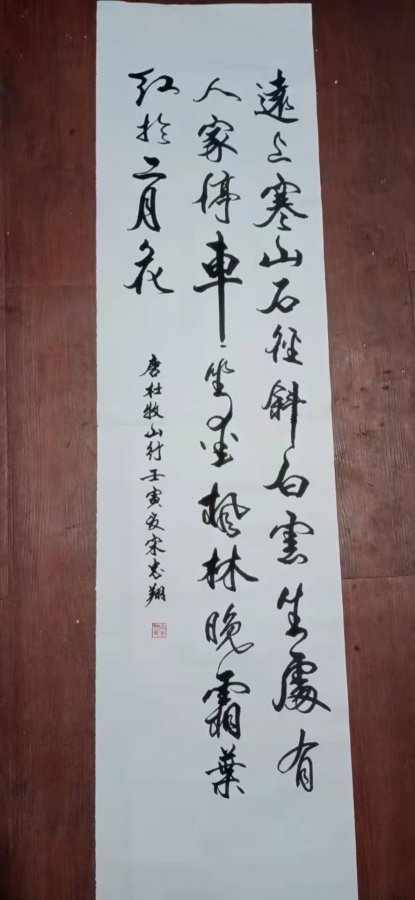 遠上寒山石徑斜白雲生處有
人家停車坐愛楓林晚霜葉
紅於二月花
唐杜牧山行壬寅夏宋志翔